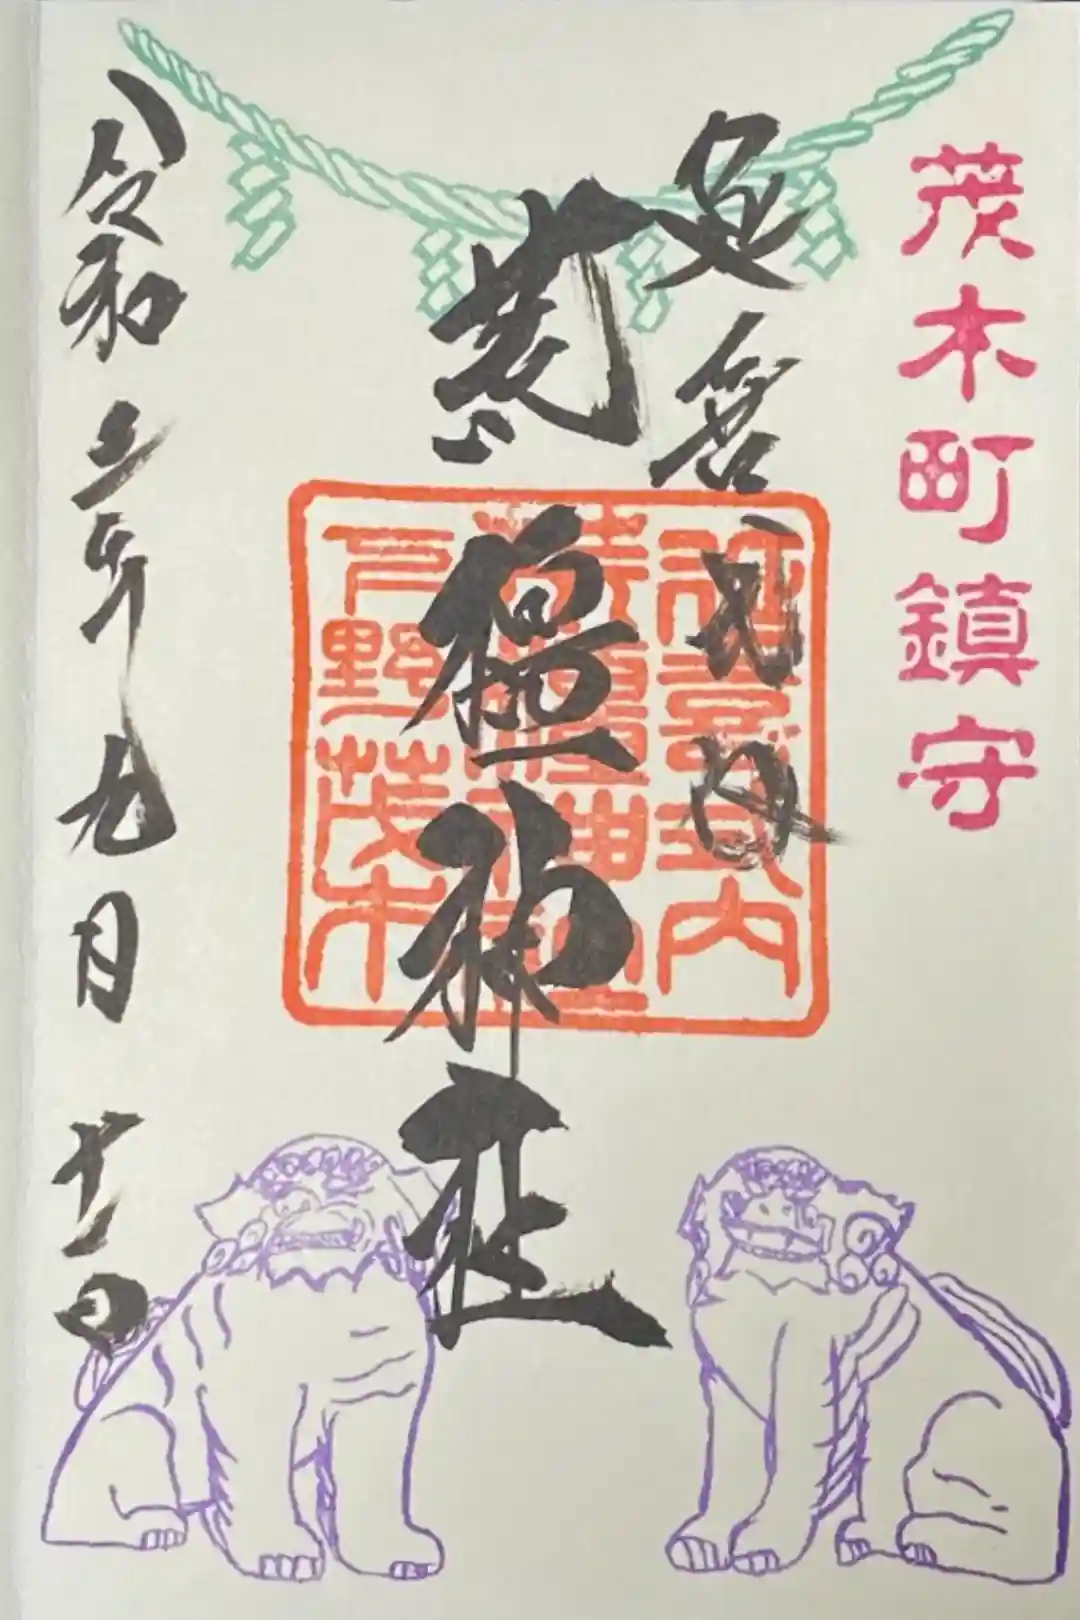 茂木町鎮守
延喜式内
荒橿神社
令和 年九月 日
延喜式内
荒橿神社
下野茂木